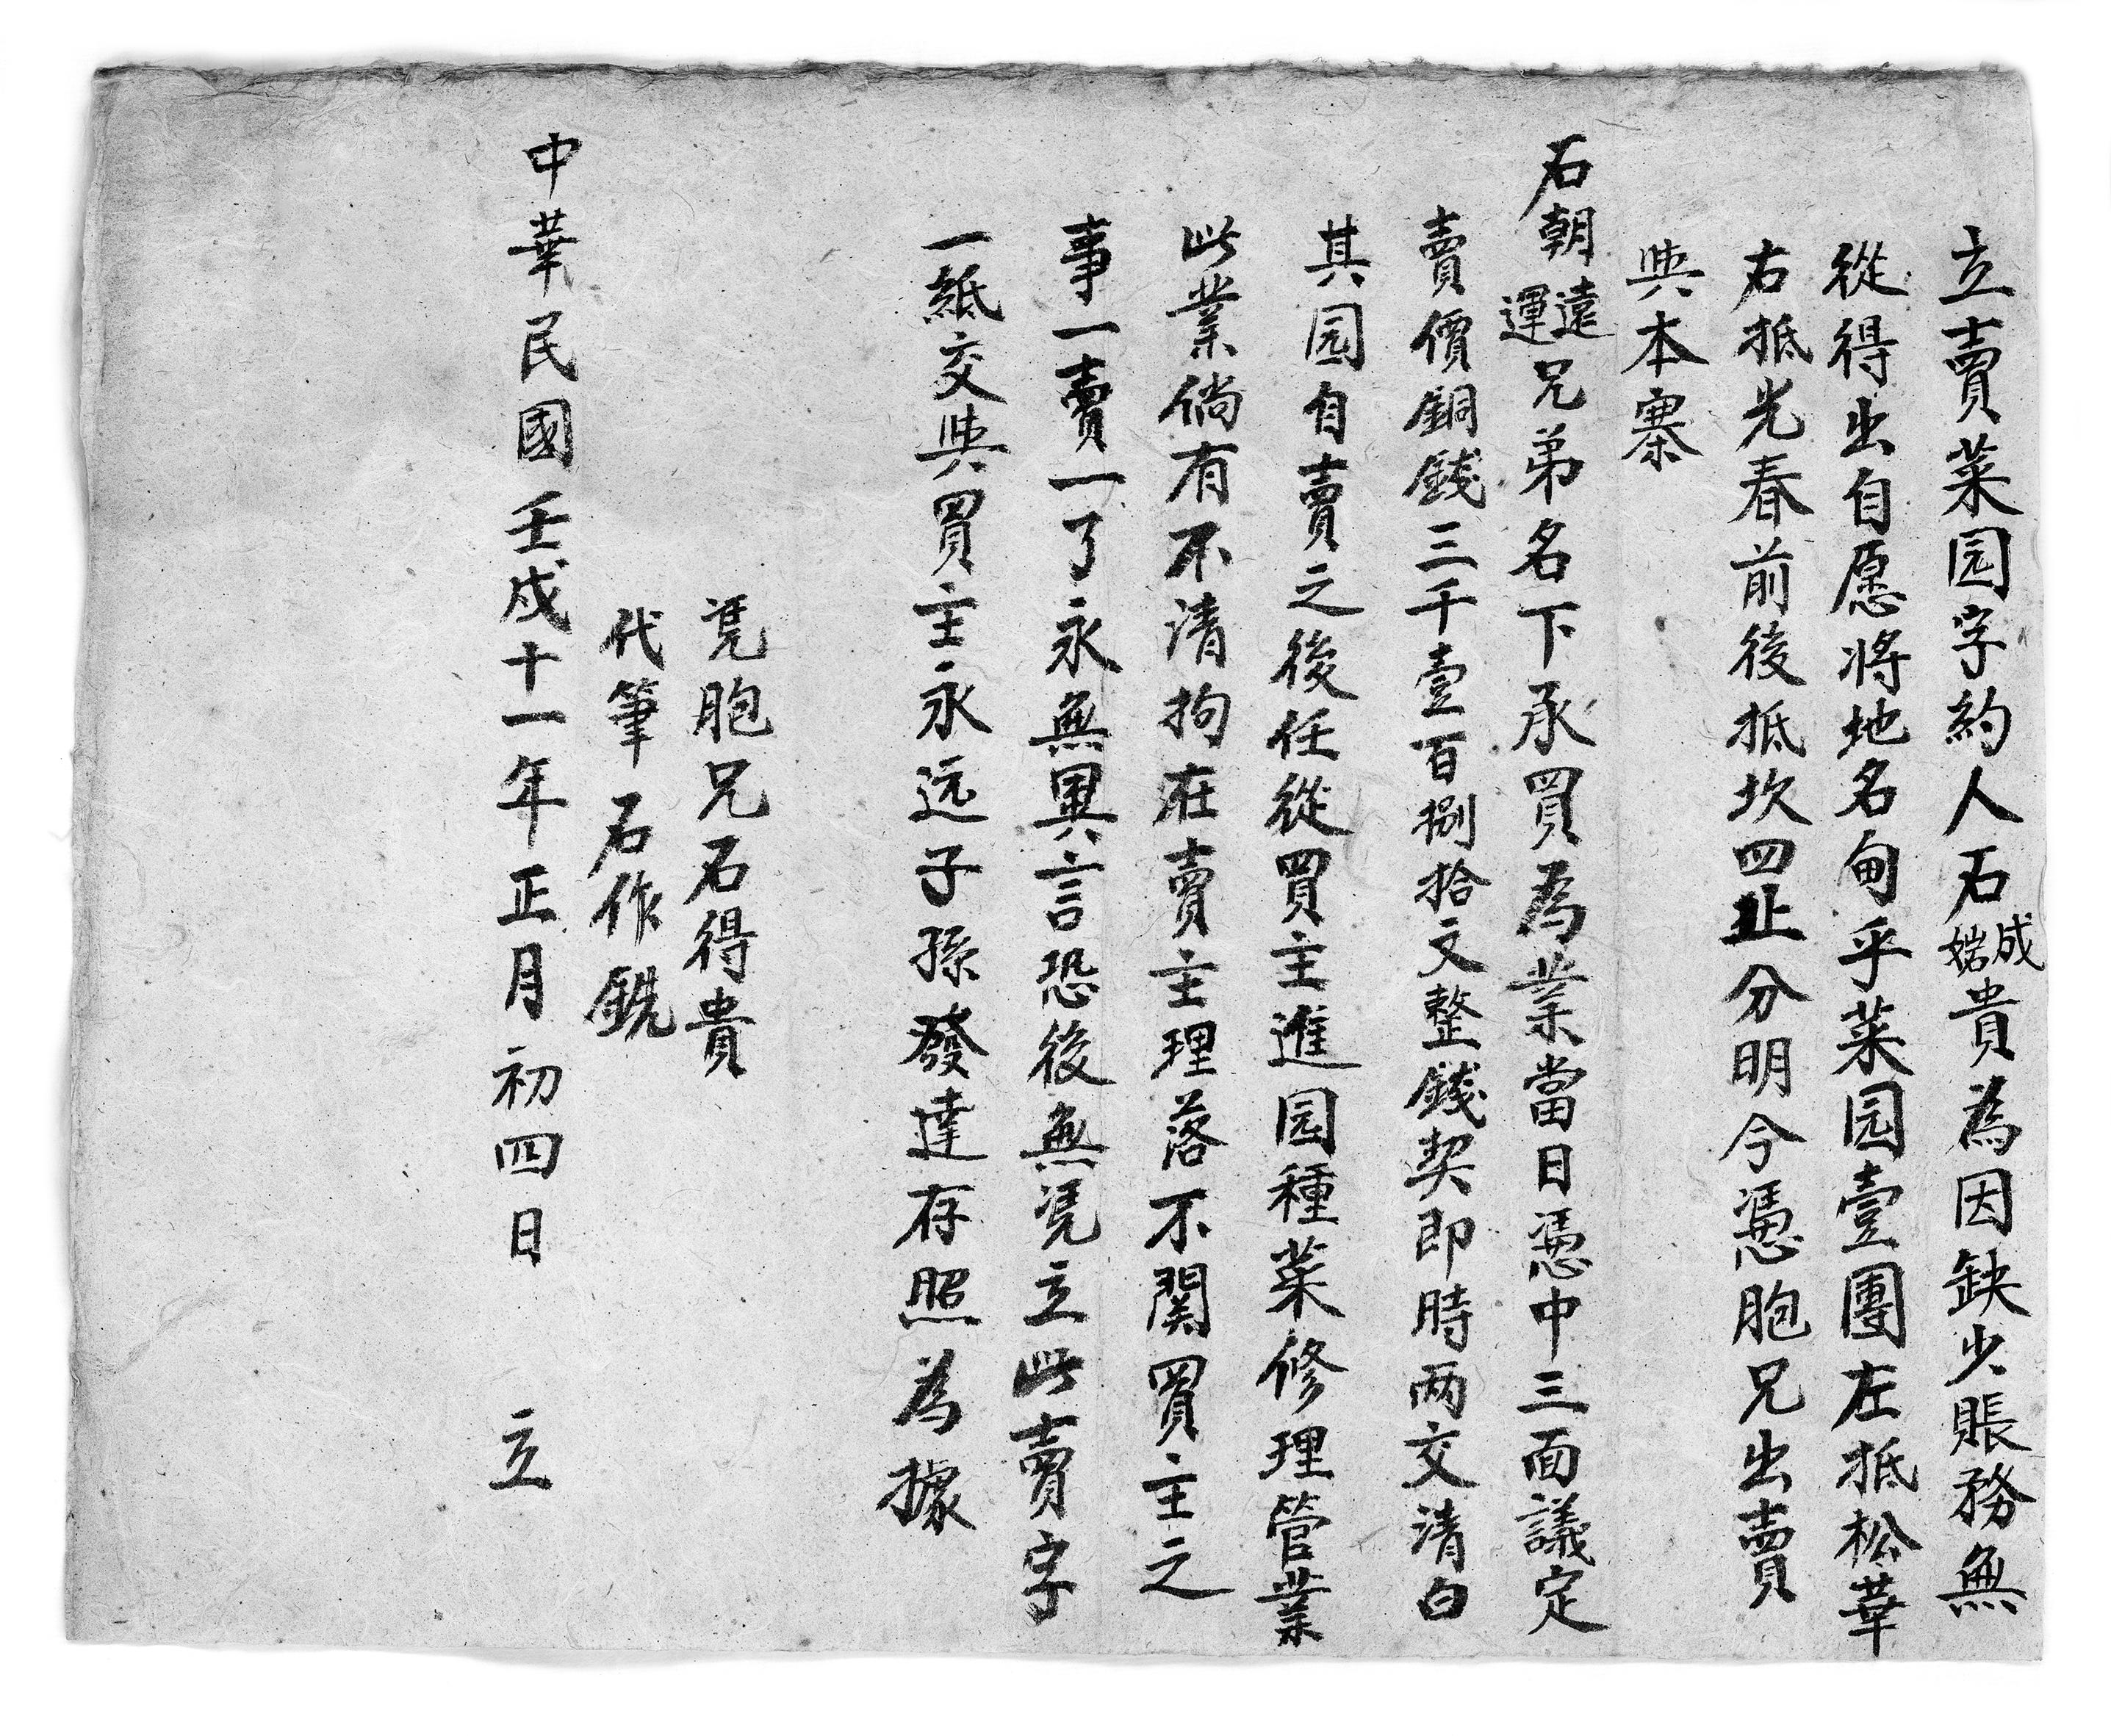 立賣菜园字約人石成 貴為因缺少賬務無
從得出自愿將地名甸乎菜园壹團左抵松華
右抵光春前後抵坎四止分明今憑胞兄出賣
與本寨
石朝遠運兄弟名下承買為業當日憑中三面議定
賣價銅錢三千壹百捌拾文整錢契即時两交清白
其园自賣之後任從買主進园種菜修理管業
此業倘有不清拘在賣主理落不関買主之
事一賣一了永無異言恐後無凭立此賣字
一紙交與買主永远子孫發達存照為據
凭胞兄石得貴
代筆石作銑
中華民國壬戌十一年正月初四日 立